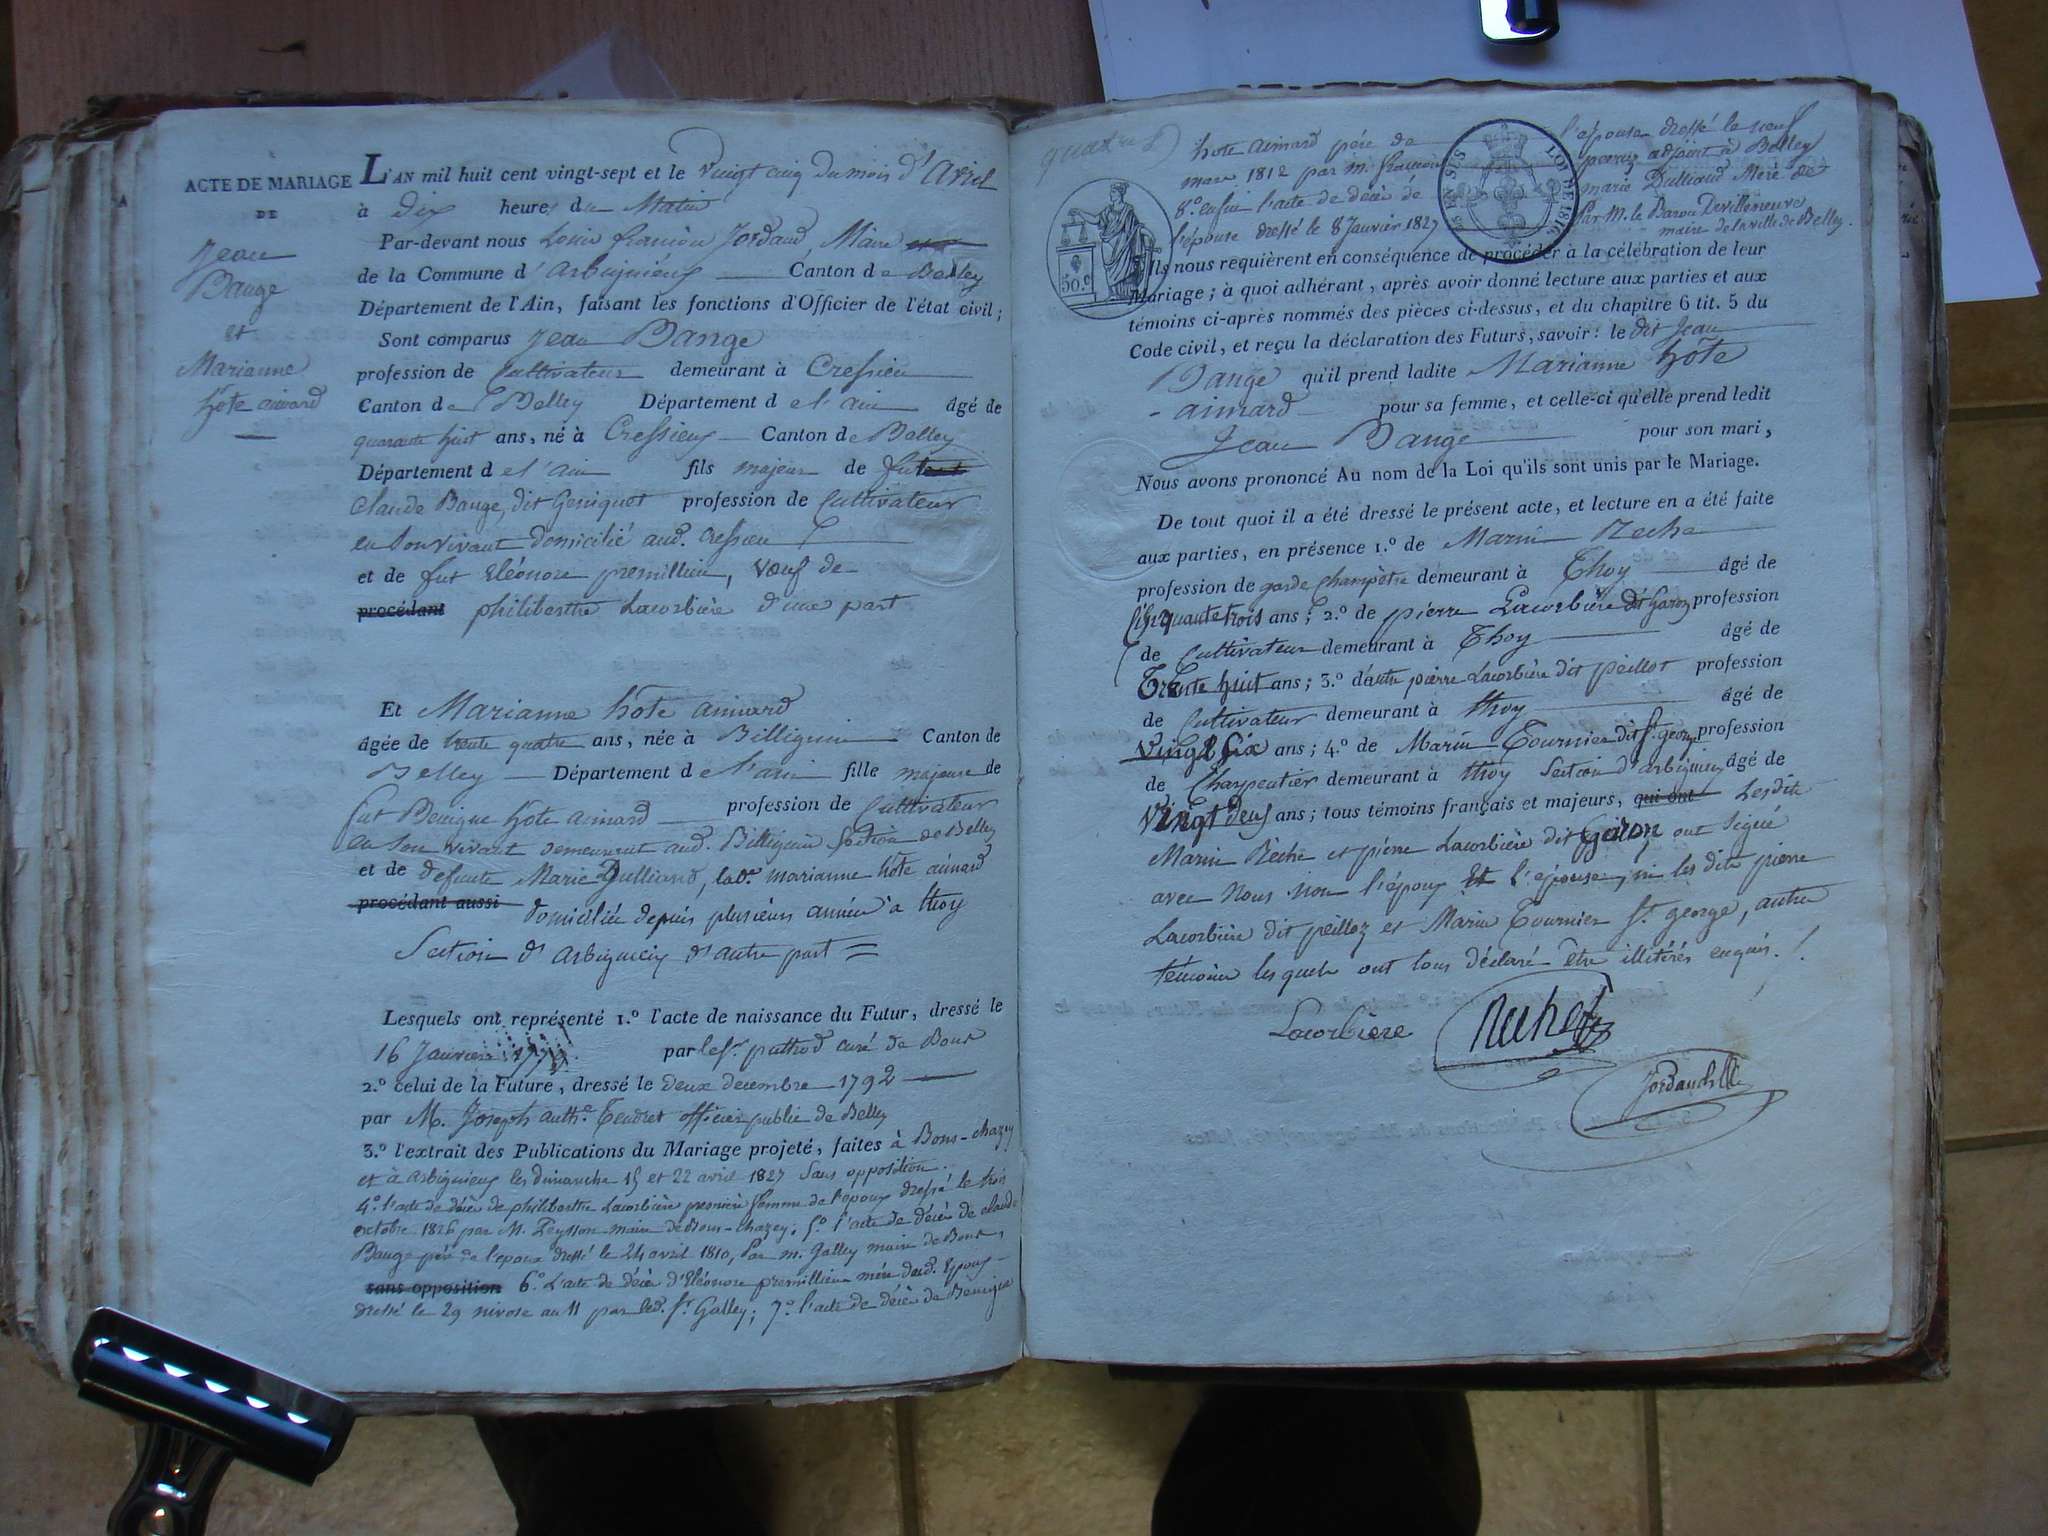 ACTE DE MARIAGE
DE
Jean
Bauge
et
Marianne
hôte aimard
L'AN mil huit cent vingt-sept et le vingt cinq du mois d'avril
à dix heures du Matin
Par-devant nous Louis françois Jordand, Maire
de la Commune d'arbignieux Canton de Belley
Département de l'Ain, faisant les fonctions d'Officier de l'état civil;
Sont comparus Jean Bauge
profession de Cultivateur demeurant à Cressieu
Canton de Belley Département de l'ain âgé de
quarante huit ans, né à Cressieux Canton de Belley
Département de l'ain fils majeur de fut
Claude Bauge, dit Geniquet profession de Cultivateur
en son vivant domicilié aud. Cressieu
et de fut Eléonore premillieu, vœuf de
procédant philiberthe Lacorbière d'une part
Et Marianne hôte aimard
âgée de trente quatre ans, née à Billignin Canton de
Belley Département de l'ain fille majeure de
fut Benigne hôte aimard profession de Cultivateur
en son vivant demeurant aud. Billignin section de Belley
et de defunte Marie Dulliand, lad.e marianne hôte aimard
procédant aussi domiciliée depuis plusieurs années à thoy
Section d'arbignieux d'autre part =
Lesquels ont représenté 1.º l'acte de naissance du Futur, dressé le
16 Janvier par le Sr. curé de Bons
2.º celui de la Future, dressé le deux decembre 1792
par M. Joseph anth.e Tendret officier public de Belley
3.º l'extrait des Publications du Mariage projeté, faites à Bons-chazey
et à arbignieux les dimanches 15 et 22 avril 1827 sans opposition.
4.º l'acte de décès de philiberthe Lacorbière premiere femme de l'époux dressé le trois
octobre 1826 par M. Peysson maire de Bons-chazey; 5.º l'acte de décès de claude
Bauge père de l'epoux dressé le 24 avril 1810, Par m. Galley maire de Bons,
sans opposition 6.º L'acte de décès d'Eléonore premillieu mére dud. Epoux
dressé le 29 nivose an 11 par led. Sr Galley; 7.º l'acte de décès de Bénigne
hote aimard père de l'épouse dressé le neuf
mars 1812 par m. adjoint à Belley
8.º enfin l'acte de décès de marie Dulliand Mère de
l'épouse dressé le 8 Janvier 1827 Par M. le Baron Devilleneuve
maire de la ville de Belley.
50.c
EN SUS
LOI DE 1816
Ils nous requièrent en conséquence de procéder à la célébration de leur
Mariage; à quoi adhérant, après avoir donné lecture aux parties et aux
témoins ci-après nommés des pièces ci-dessus, et du chapitre 6 tit. 5 du
Code civil, et reçu la déclaration des Futurs, savoir: le dit Jean
Bauge qu'il prend ladite Marianne hôte
aimard pour sa femme, et celle-ci qu'elle prend ledit
Jean Bauge pour son mari,
Nous avons prononcé Au nom de la Loi qu'ils sont unis par le Mariage.
De tout quoi il a été dressé le présent acte, et lecture en a été faite
aux parties, en présence 1.º de Marin Reche
profession de garde Champêtre demeurant à Thoy âgé de
Cinquante trois ans; 2.º de pierre Lacorbière dit Garon profession
de Cultivateur demeurant à Thoy âgé de
Trente huit ans; 3.º d'autre pierre Lacorbière dit peillot profession
de Cultivateur demeurant à thoy âgé de
vingt six ans; 4.º de Marin Tournier dit St. george profession
de Charpentier demeurant à thoy Section d'arbignieux âgé de
Vingt deux ans; tous témoins français et majeurs, qui ont Lesdits
Marin Reche et pierre Lacorbière dit Garon, ont signé
avec Nous non l'époux et l'épouse, ni les dits pierre
Lacorbière dit peilloz et Marin Tournier St. george, autres
témoins lesquels ont tous déclaré être illitérés enquis.
Lacorbière Reche
Jordand